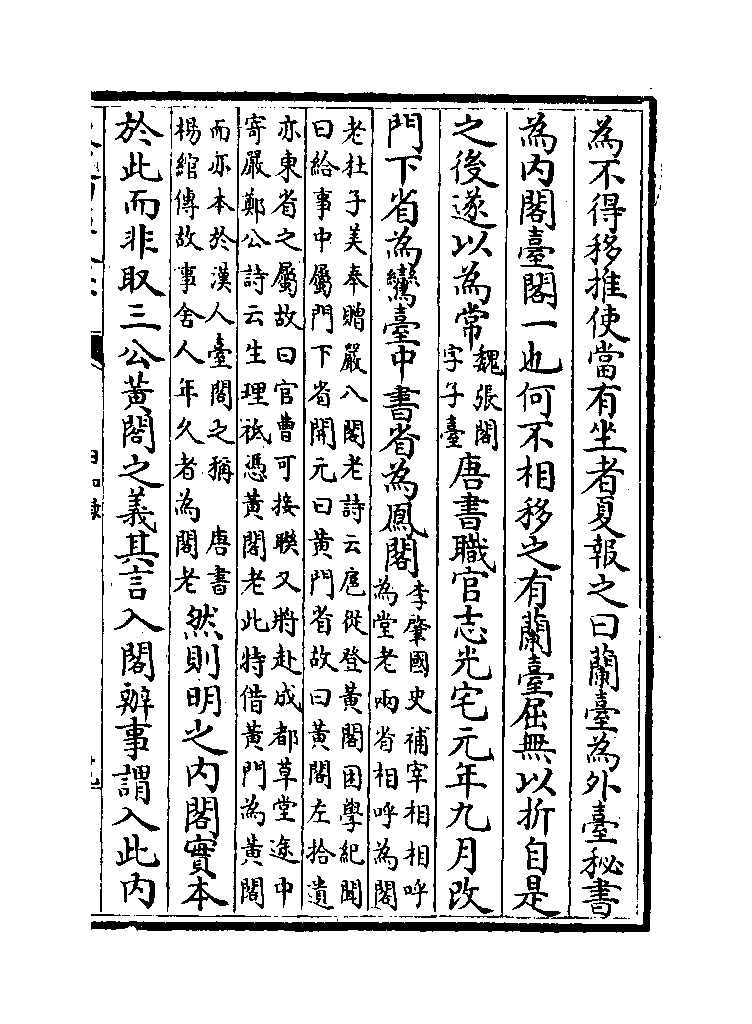 為不得移推使當有坐者夏報之曰蘭臺為外臺秘書
為内閣臺閣一也何不相移之有蘭臺屈無以折自是
之後遂以為常魏張閣字子臺唐書職官志光宅元年九月改
門下省為鸞臺中書省為鳳閣李肇國史補宰相相呼為堂老兩省相呼為閣
老杜子美奉贈嚴八閣老詩云扈從登黄閣困學紀聞
曰給事中屬門下省開元曰黄門省故曰黄閣左拾遺
亦東省之屬故曰官曹可接聯又將赴成都草堂途中
寄嚴鄭公詩云生理祗憑黄閣老此特借黄門為黄閣
而亦本於漢人臺閣之稱 唐書楊綰傳故事舍人年久者為閣老然則明之内閣實本
於此而非取三公黄閣之義其言入閣辦事謂入此内